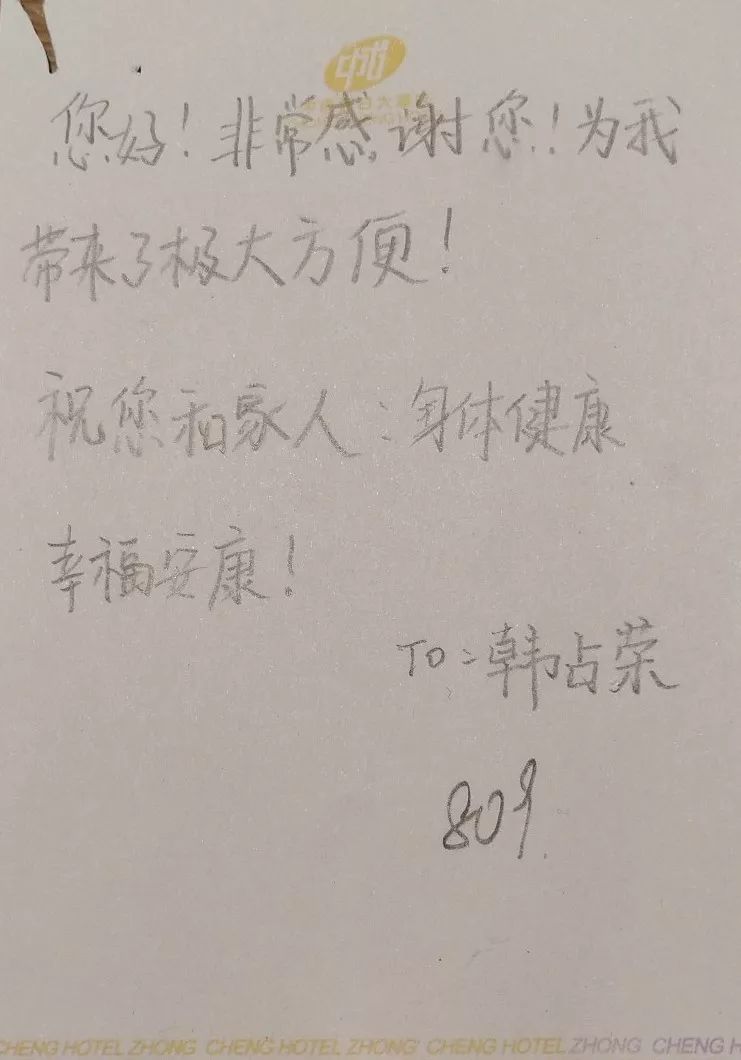 中成
您好！非常感谢您！为我
带来了极大方便！
祝您和家人：身体健康
幸福安康！
To：韩占荣
809.
CHENG HOTEL ZHONG CHENG HOTEL ZHONG CHENG HOTEL ZHONG CHENG H